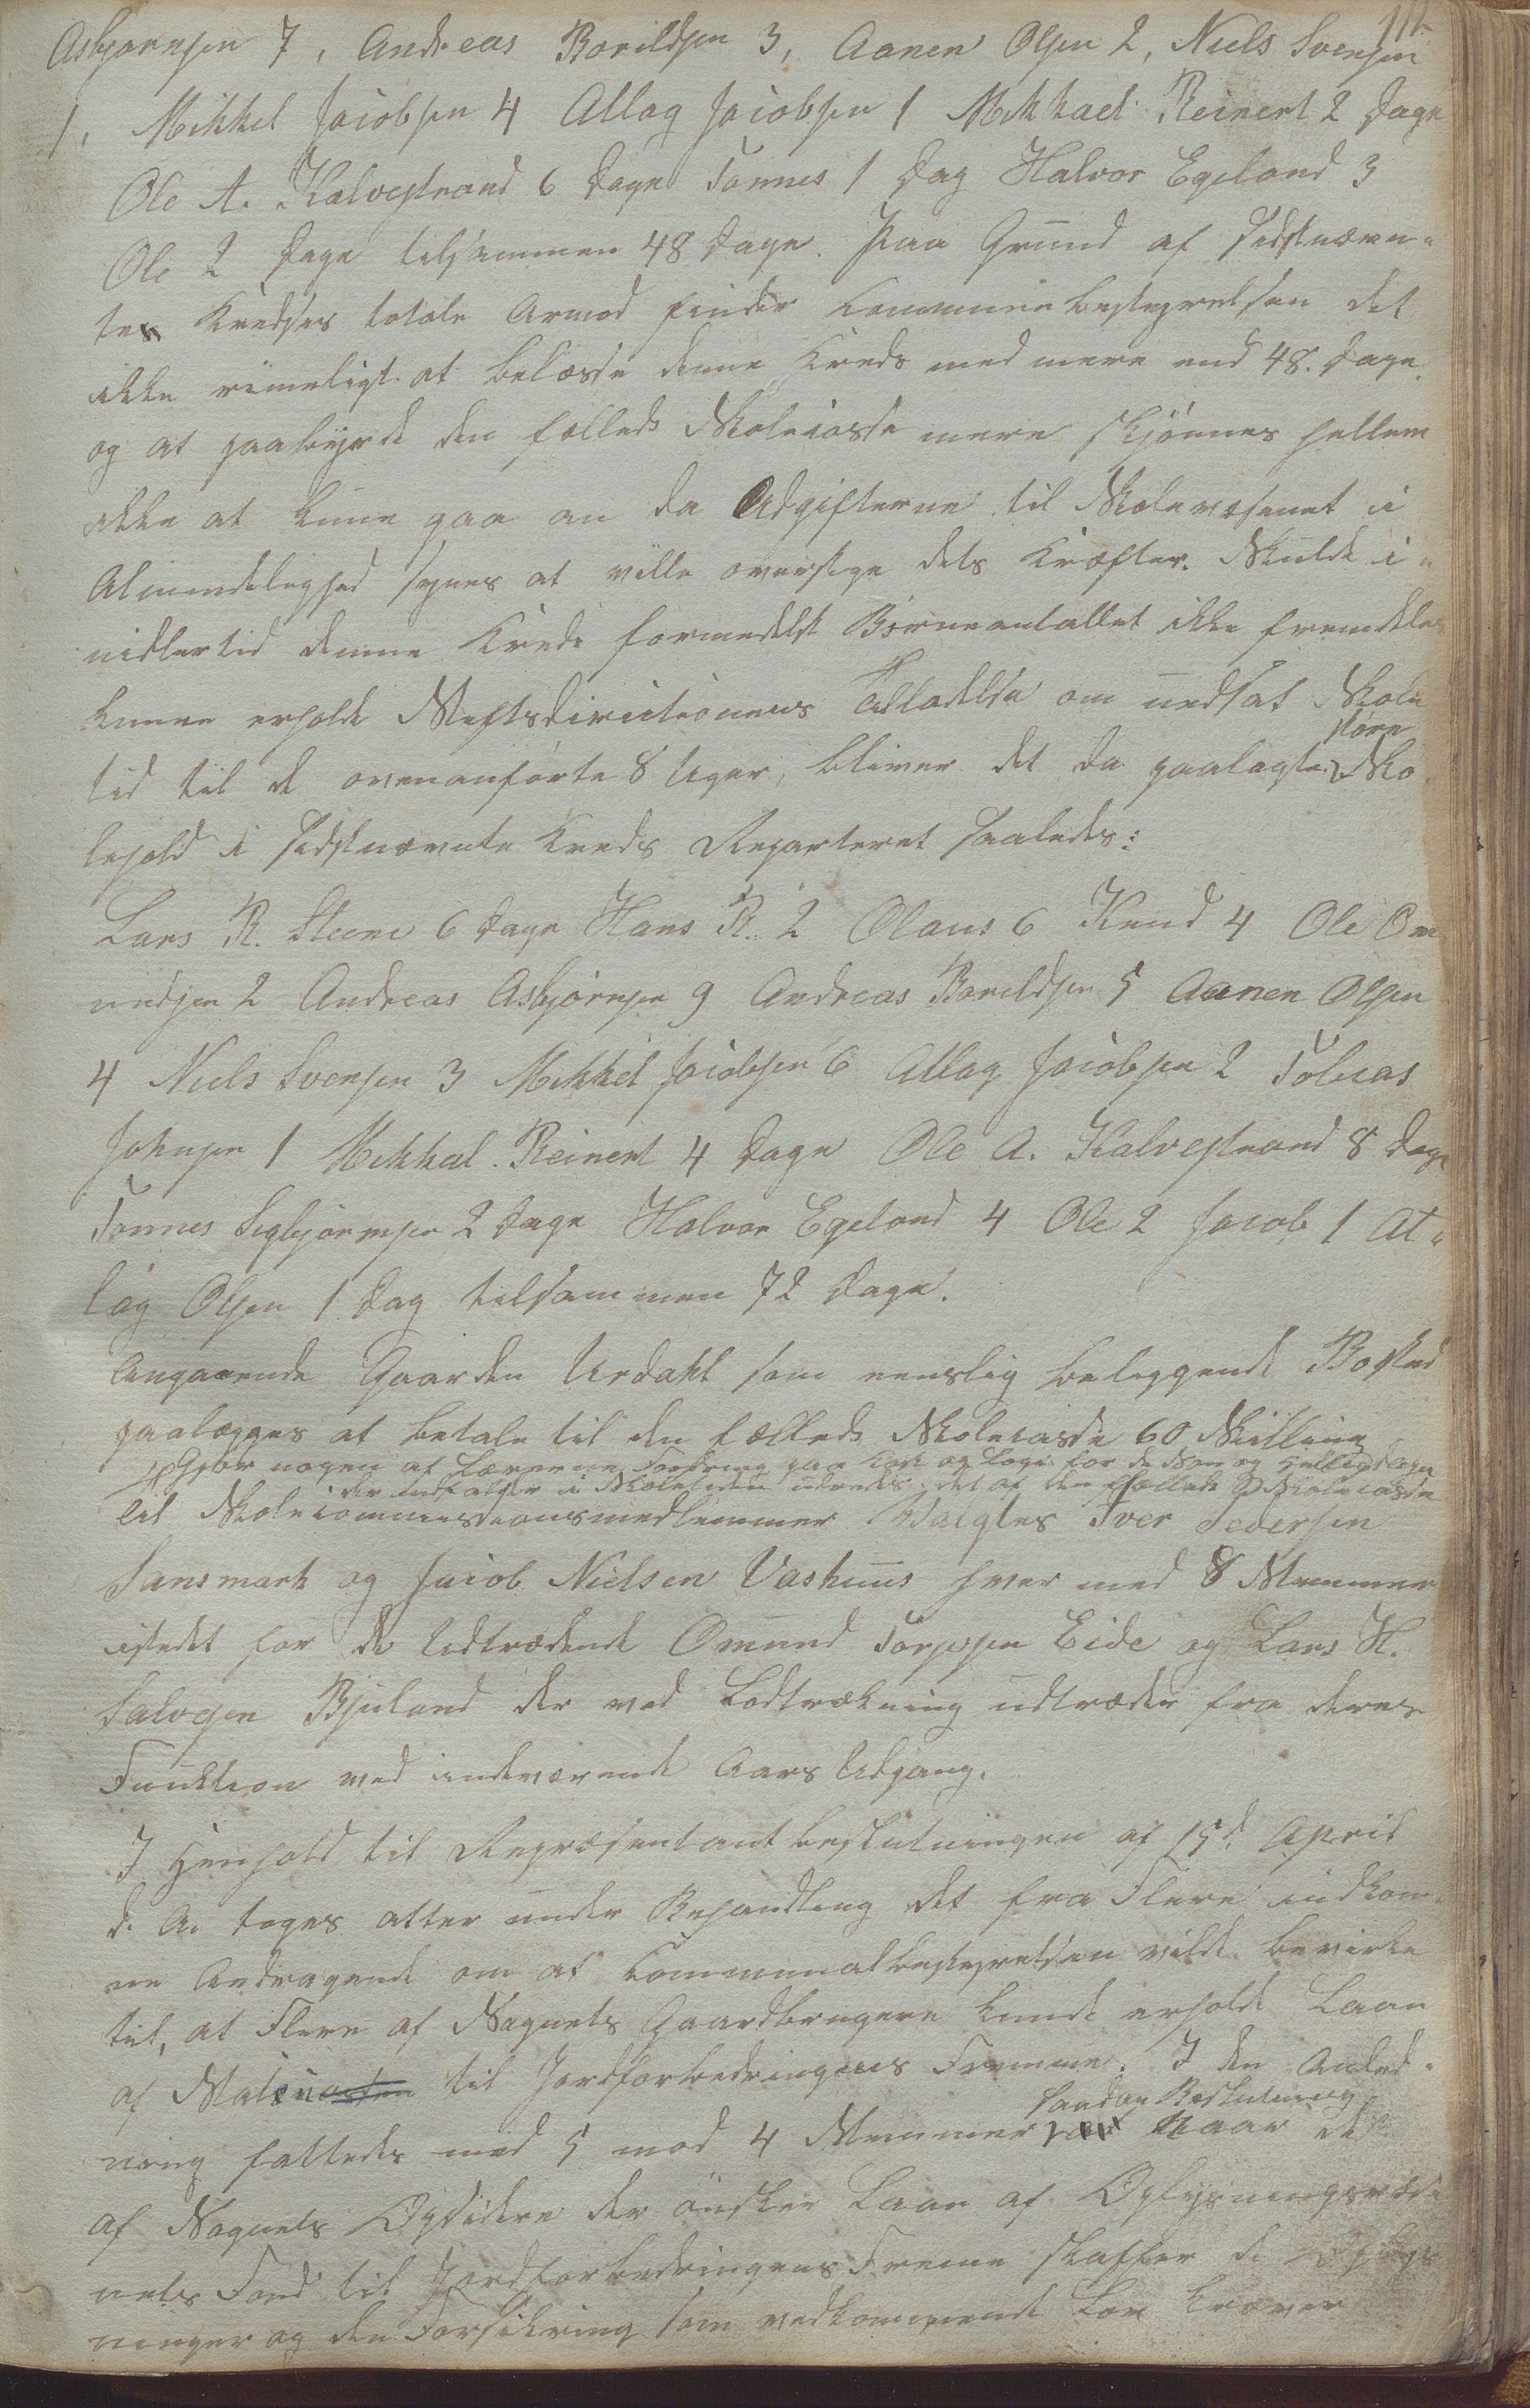 Asbjørnsen 7, Andreas Borildsen 3, Aanen Olsen 2, Niels Svensen
1, Mikkel Jacobsen 4 Atlag Jacobsen 1 Mikkael Reinert 2 Dage
Ole A. Kalvestrand 6 Dage Tønnes 1 Dag Halvor Egeland 3
Ole 2 Dage tilsammen 48 Dage. Paa Grund af sidstnævn-
te Kredses totale Armod finder Kommunebestyrelsen det
ikke rimeligt at belæsse denne Kreds med mere end 48. Dage.
og at paabyrde den fælleds Skolecasse mere skjønnes hellem
ikke at kune gaa an da Udgifterne til Skolevæsenet i
Almindelighed synes at ville overstige dets Kræfter. Skulde i-
midlertid denne Kreds formedelst Børneantallet ikke fremdeles
kunne erholde Stiftsdirectionens Tilladelse om nedsat Skole
tid til de ovenanførte 8 Uger, bliver det da paalagte Sko
større
lehold i sidstnævnte Kreds Reparteret saaledes:
Lars R. Steene 6 Dage Hans R. 2 Olaus 6 Knud 4 Ole Om
undsen 2 Andreas Asbjørnsen 9 Andreas Borildsen 5 Aanen Olsen
4 Niels Svensen 3 Mikkel Jacobsen 6 Atlag Jacobsen 2 Tobias
Johnsen 1 Mikkal Reinert 4 Dage Ole A. Kalvestrand 8 Dage
Tønnes Sigbjørnsen 2 Dage Halvor Egeland 4 Ole 2 Jacob 1 At-
lag Olsen 1 Dag tilsammen 72 Dage.
Angaaende Gaarden Urdahl som eenslig beliggende Bosted
paalægges at betale til den fælleds Skolecasse 60 Skilling
Gjør nogen af Lærerne Fordring paa Kost og Logi for de Søn og Helligdage
der indfalder i Skoletiden udredes det af den fælleds Skolecasse
Til Skolecommissionsmedlemmer Valgtes Iver Pedersen
Sansmark og Jacob Nielsen Vashuus hver med 8 Stemmer
istedet for de Udtrædende Omund Torjesen Eide og Lars H.
Salvesen Bjuland der ved Lodtrækning udtræder fra deres
Funktion ved indeværende Aars Udgang.
I Henhold til Repræsentantbeslutningen af 15d April
d. A. toges atter under Behandling det fra Flere indkom-
ne Andragende om at Kommunalbestyrelsen vilde bevirke
til, at Flere af Sognets Gaardbrugere kunde erholde Laan
af til Jordforbedringens Fremme. I den Anled-
ning fattedes med 5 mod 4 Stemmer naar de
saadan Beslutning
af Sognets Opsidere der ønsker Laan af Oplysningsvæse
nets Fond til Jordforbedringens Freme skaffer de
ninger og den Forsikring som vedkommende Lov kræver